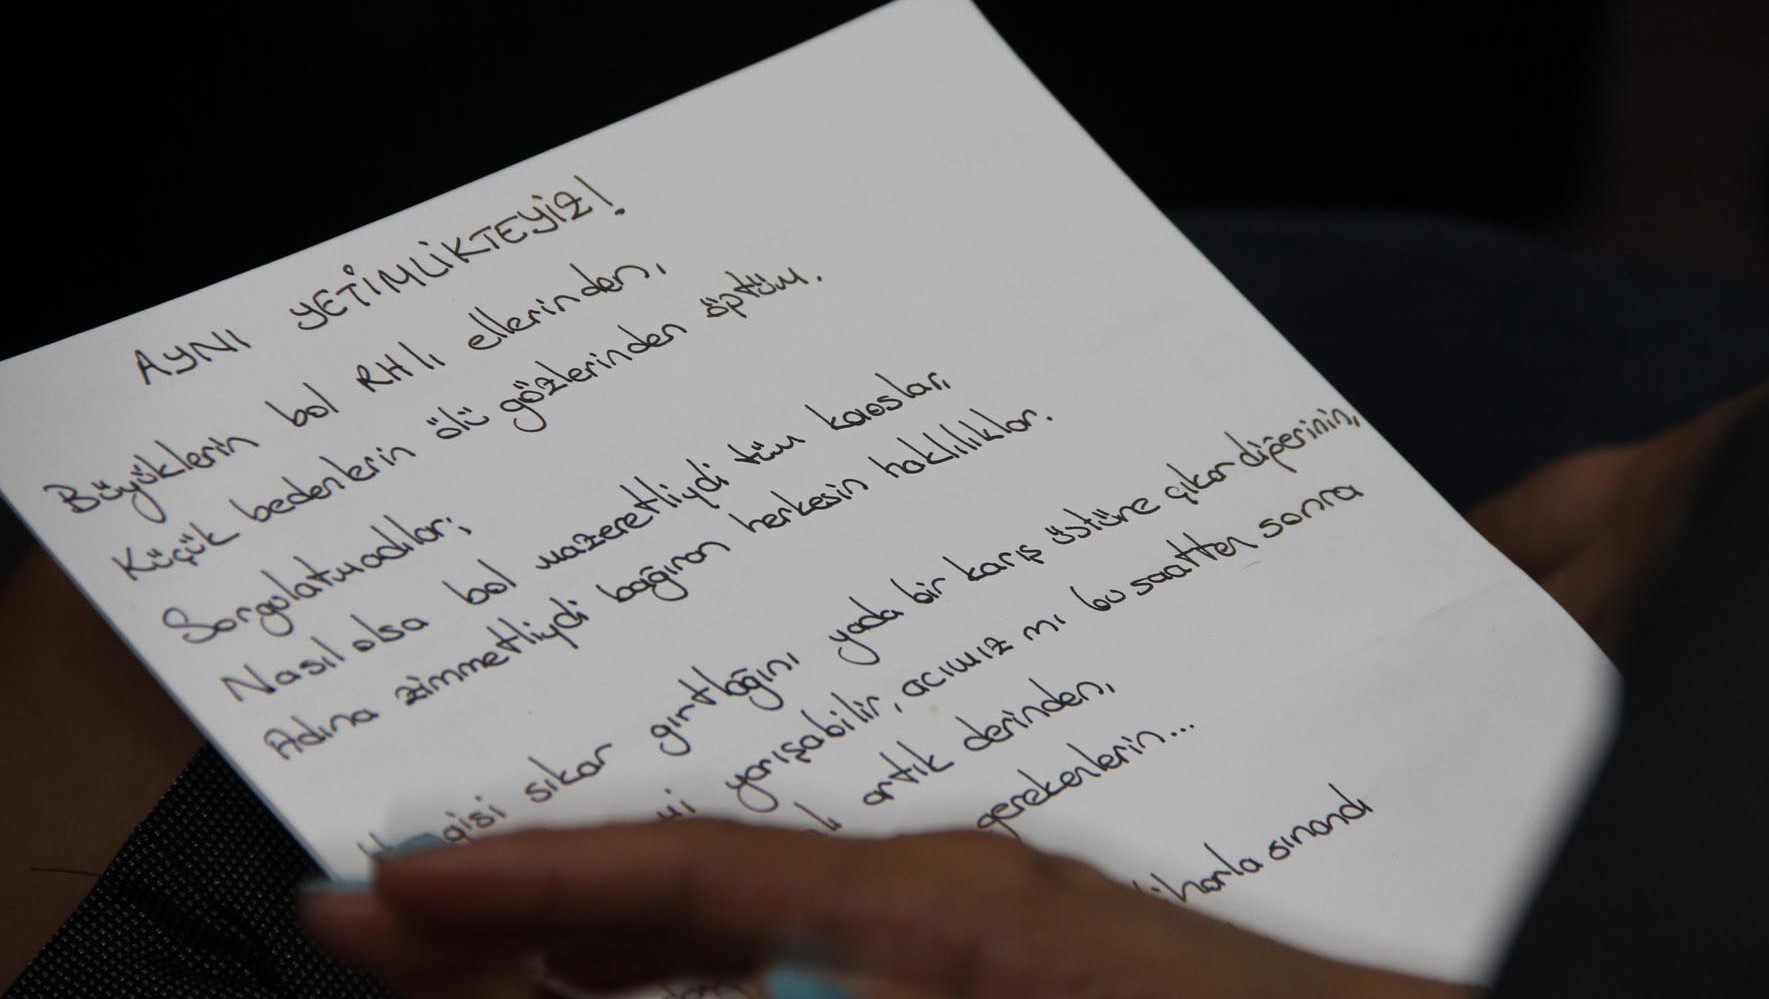 AYNI YETİMLİKTEYİZ!
Büyüklerin bol RH'lı ellerinden,
Küçük bedenlerin ölü gözlerinden öptüm.
Sorgulatmadılar;
Nasıl olsa bol mazeretliydi tüm kaoslar,
Adına zimmetliydi bağıran herkesin haklılıklar.
sıkar gırtlağını yada bir karış üstüne çıkar diğerinin,
yarışabilir, acımız mı bu saatten sonra
artık derinden,
gerekenlerin...
sınandı